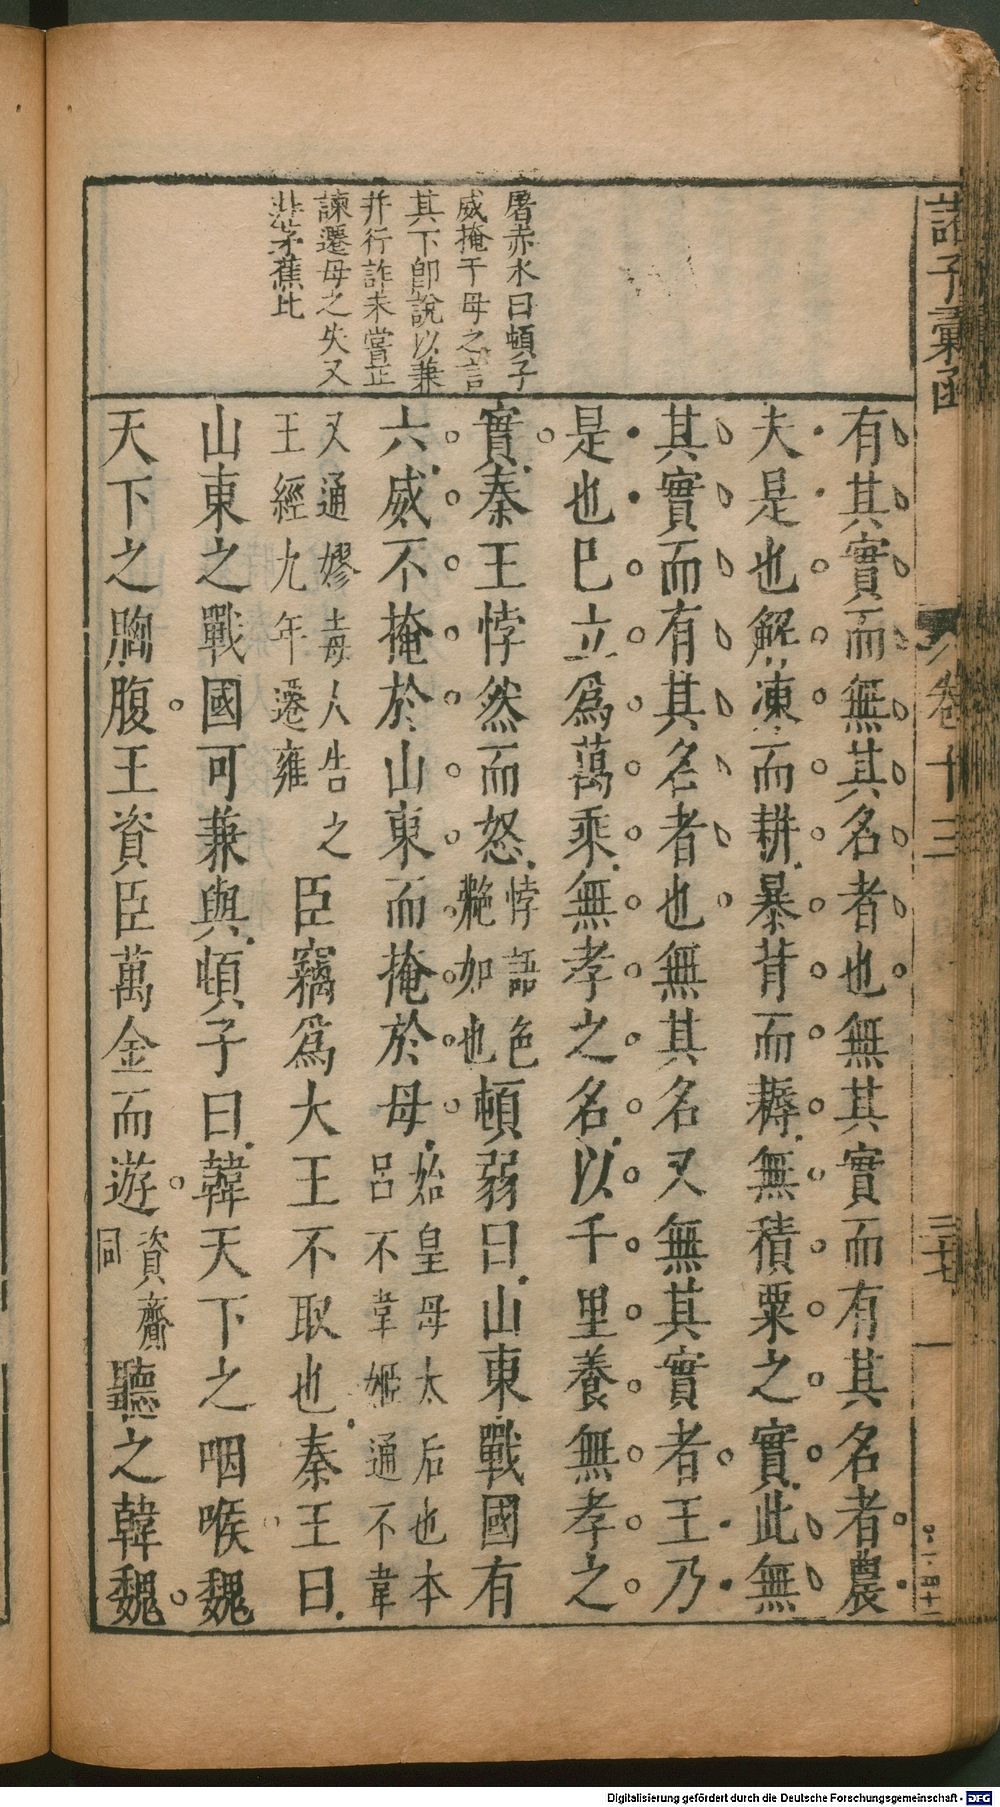 諸子彙函
卷十三
三十七
屠赤水曰頓子
威掩于母之言
其下卽說以兼
并行詐未嘗正
諫遷母之失又
非茅蕉比
有其實而無其名者也無其實而有其名者農
夫是也解凍而耕暴背而耨無積粟之實此無
其實而有其名者也無其名又無其實者王乃
是也已立爲萬乘無孝之名以千里養無孝之
實秦王悖然而怒悖語色艴加也頓弱曰山東戰國有
六威不掩於山東而掩於母始皇母太后也本呂不韋姬通不韋
又通嫪毐人告之王經九年遷雍臣竊爲大王不取也秦王曰
山東之戰國可兼與頓子曰韓天下之咽喉魏
天下之胸腹王資臣萬金而遊資齎同聽之韓魏
Digitalisierung gefördert durch die Deutsche Forschungsgemeinschaft - DFG